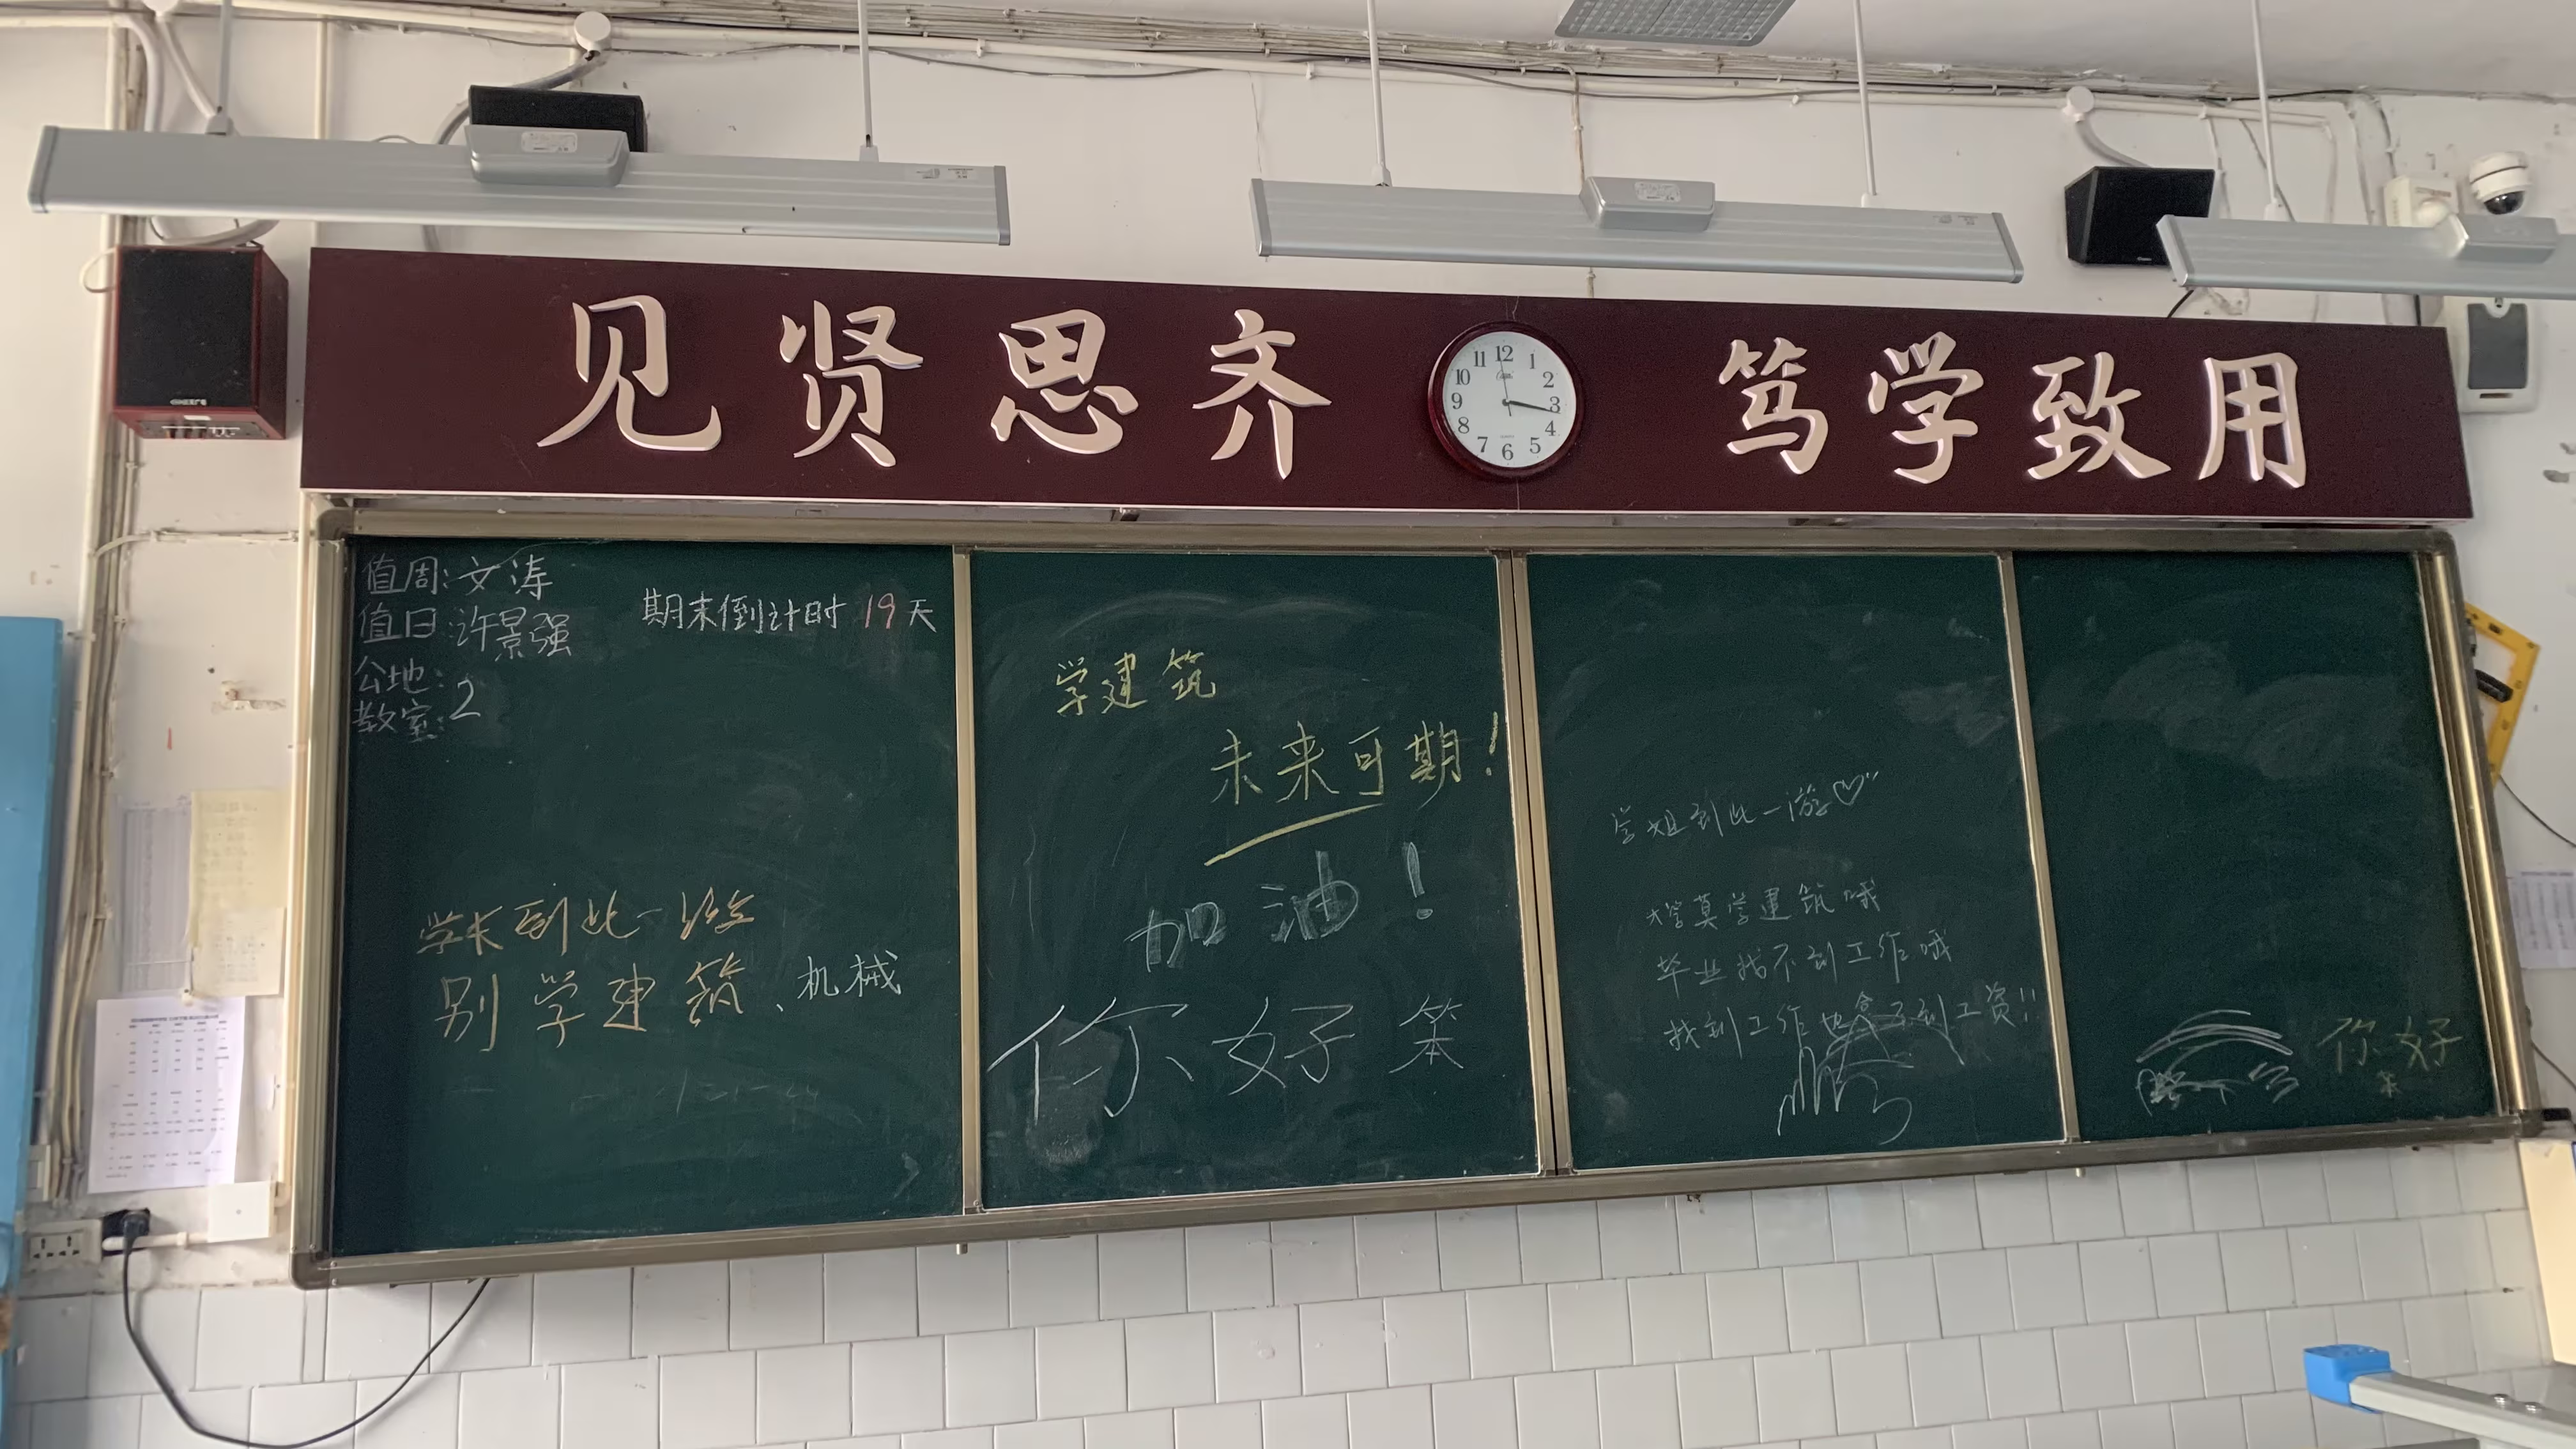 见贤思齐 笃学致用
12
1
2
3
4
5
6
7
8
9
10
11
值周:文涛
值日:许景强
公地:
教室:2
期末倒计时 19天
学长到此一游
别学建筑、机械
学建筑
未来可期!
加油!
你好笨
学姐到此一游♡
大学莫学建筑哦
毕业找不到工作哦
找到工作也拿不到工资!!
你好